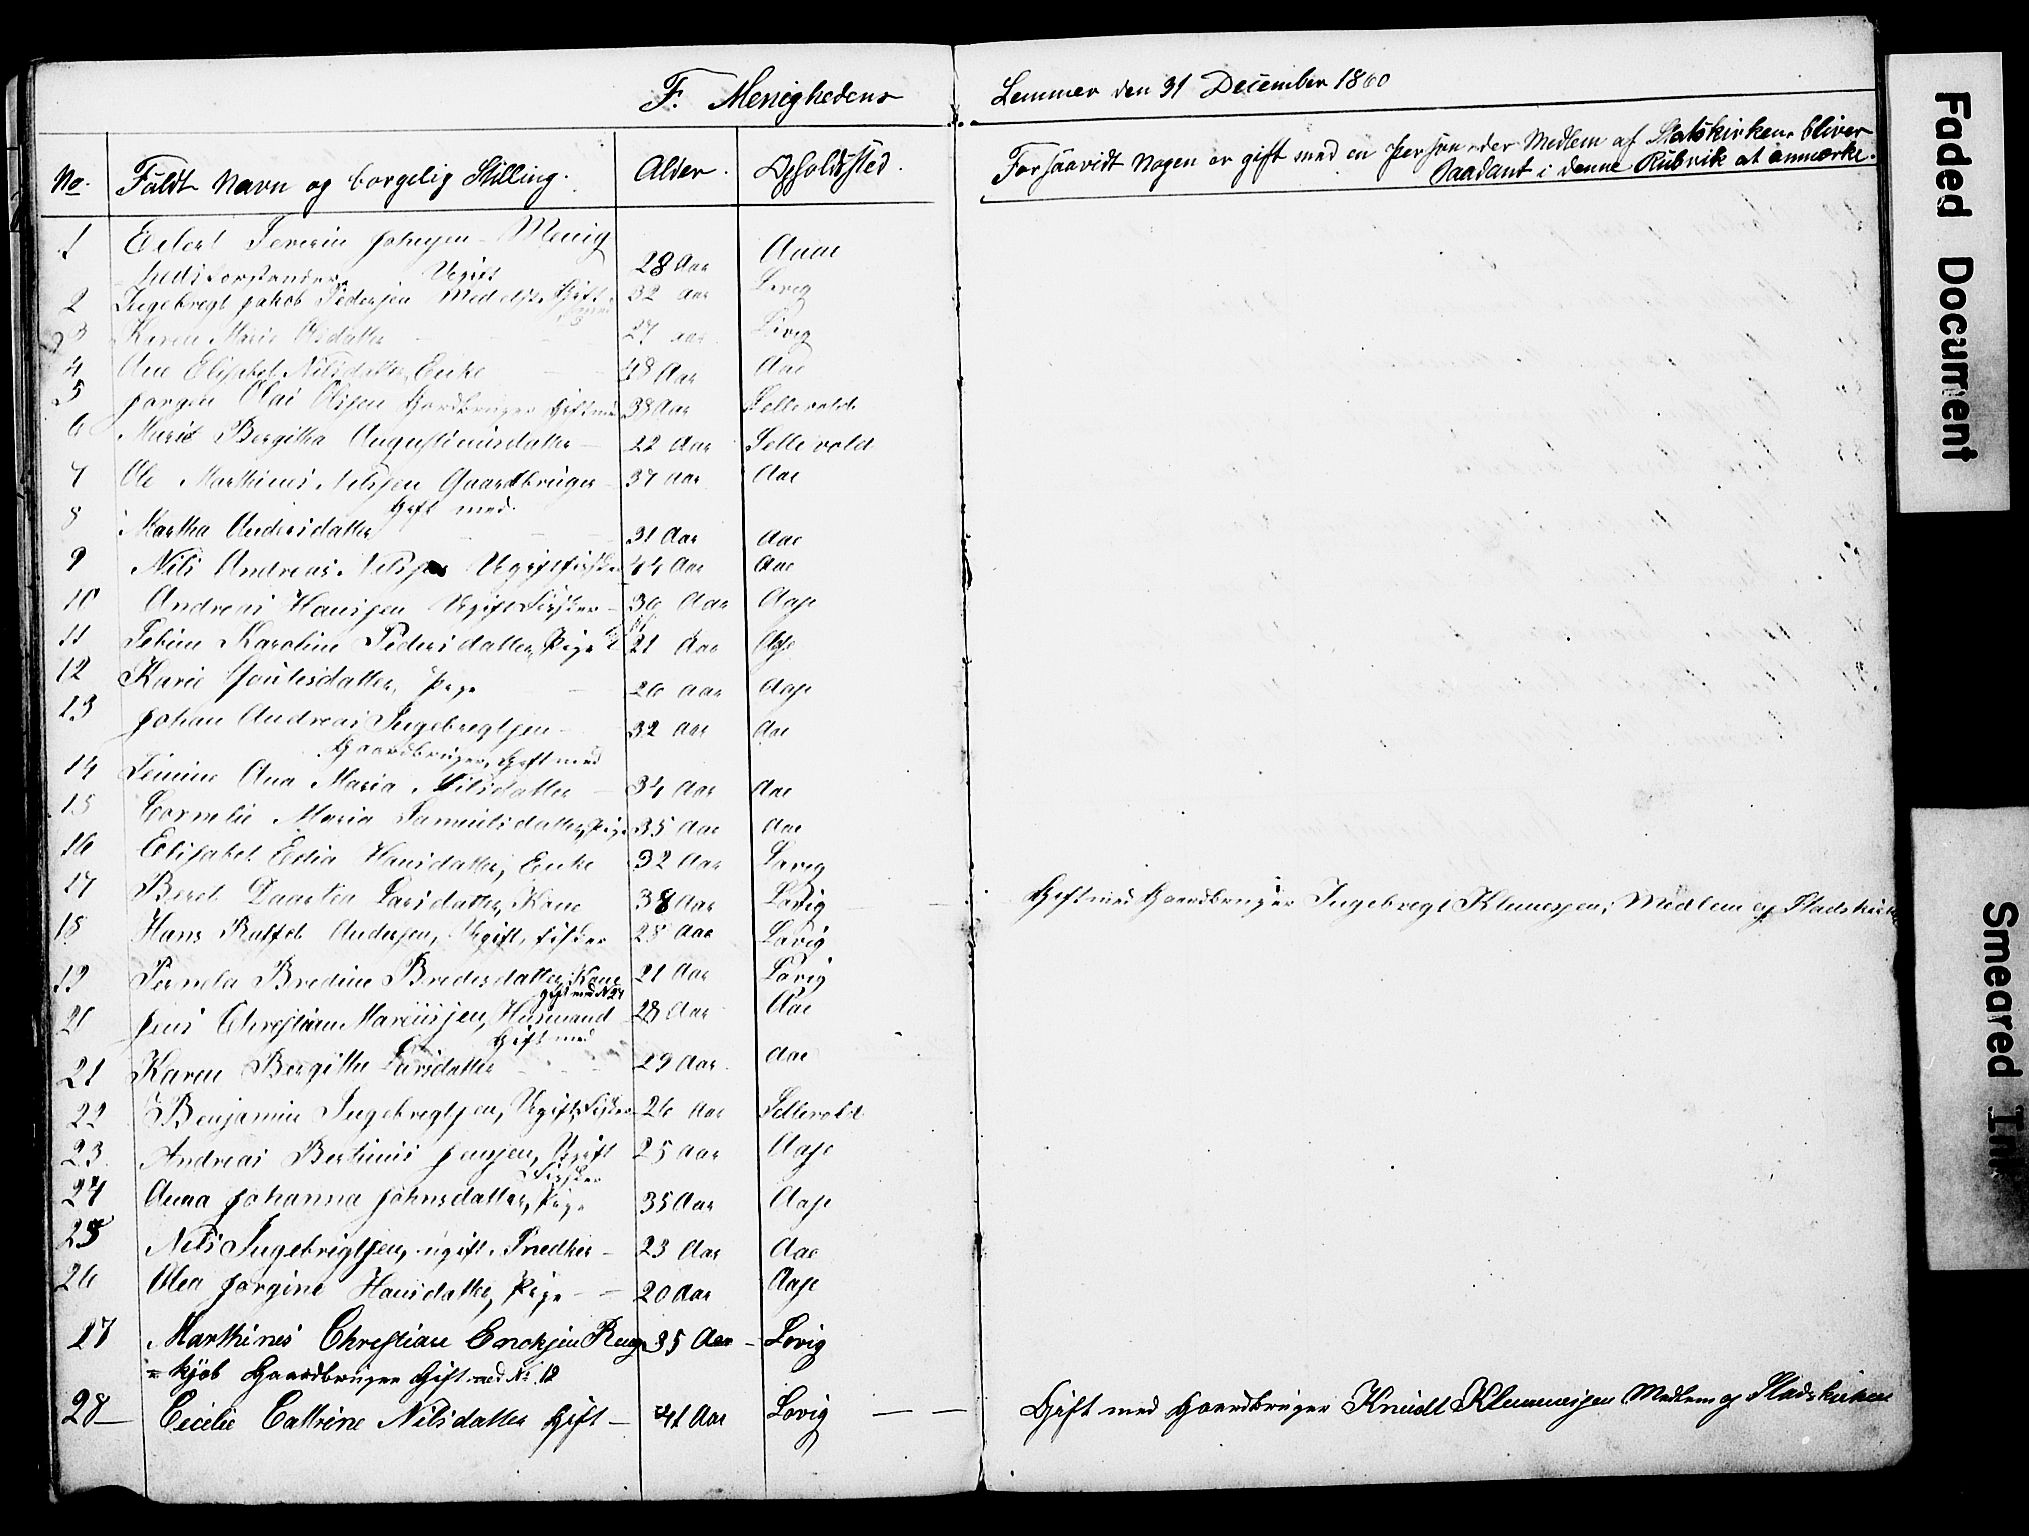 F. Menighedens Lemmer den 31 December 1860
No. Fuldt Navn og borgelig Stilling. Alder. Opholdssted. Forsaavidt Nogen er gift med en Person der Medlem af Statskirken, bliver
Saadant i denne Rubrik at anmærke.
1 Severin Johnsen Menig
hedsforstander Ugift 28 Aar Aaae
2 Ingebregt Jakob Pedersen Gift 32 Aar Lovig
3 Karen Marie Olsdatter 27 aar Lovig
4 Ane Elisabet Nilsdatter, Enke 48 Aar Aae
5 Jørgen Olai Olssen Gardbruger Gift med 38 Aar Sellevold
6 Marit Bergitha Augustinusdatter 22 Aar Sellevold
7 Ole Marthinus Nilssen Gaardbruger 37 aar Aae
Gift med.
8 Martha Andersdatter 31 Aar Aae
9 Nils Andreas Nilssen Ugift fisker 44 Aar Aae
10 Andreas Hanssen Ugift Fisker 30 Aar Aase
11 Karoline Pedersdatter, Pige 21 Aar Aase
12 Karie datter, Pige 26 aar Aase
13 Johan Andreas Ingebregtsen 32 Aar Aae
Gaardbruger, Gift med
14 Ana Maria Nilsdatter 34 Aar Aae
15 Cornelie Maria Samuelsdatter, Pige 35 Aar Aae
16 Elisabet Edia Hansdatter, Enke 32 Aar Lovig
17 Beret Daartea Larsdatter, Kone 38 Aar Lovig Gift med Gaardbruger Ingebregt Klemesen, Medlem af Stadskirken
18 Hans Andersen, Ugift, fisker 28 Aar Lovig
19 Pernela Bredine Bredesdatter, Kone 21 Aar Lovig
gift med N 27
20 Jens Christian Mariussen, Husmand 28 Aar Aae
Gift med
21 Karen Bergitte Larsdatter 29 Aar Aae
22 Benjamin Ingebregtsen, Ugift, Fisker 26 Aar Sellevold
23 Andreas Bertinus Jensen, Ugift 25 Aar Aase
Fisker
24 Anna Johanna Johnsdatter, Pige 35 Aar Aase
25 Nils Ingebrigtsen, ugift, Snedker 23 Aar Aae
26 Olea Jørgine Hansdatter, Pige 20 Aar Aase
27 Marthines Christian Enoksen 35 Aar Lovig
= kjøb Gaardbruger Gift med No. 19
28 Cicelie Cattrine Nilsdatter Gift 41 Aar Lovig Gift med Gaardbruger Knudt Klemmessen Medlem af Stadskirken
Faded Document
Smeared Ink